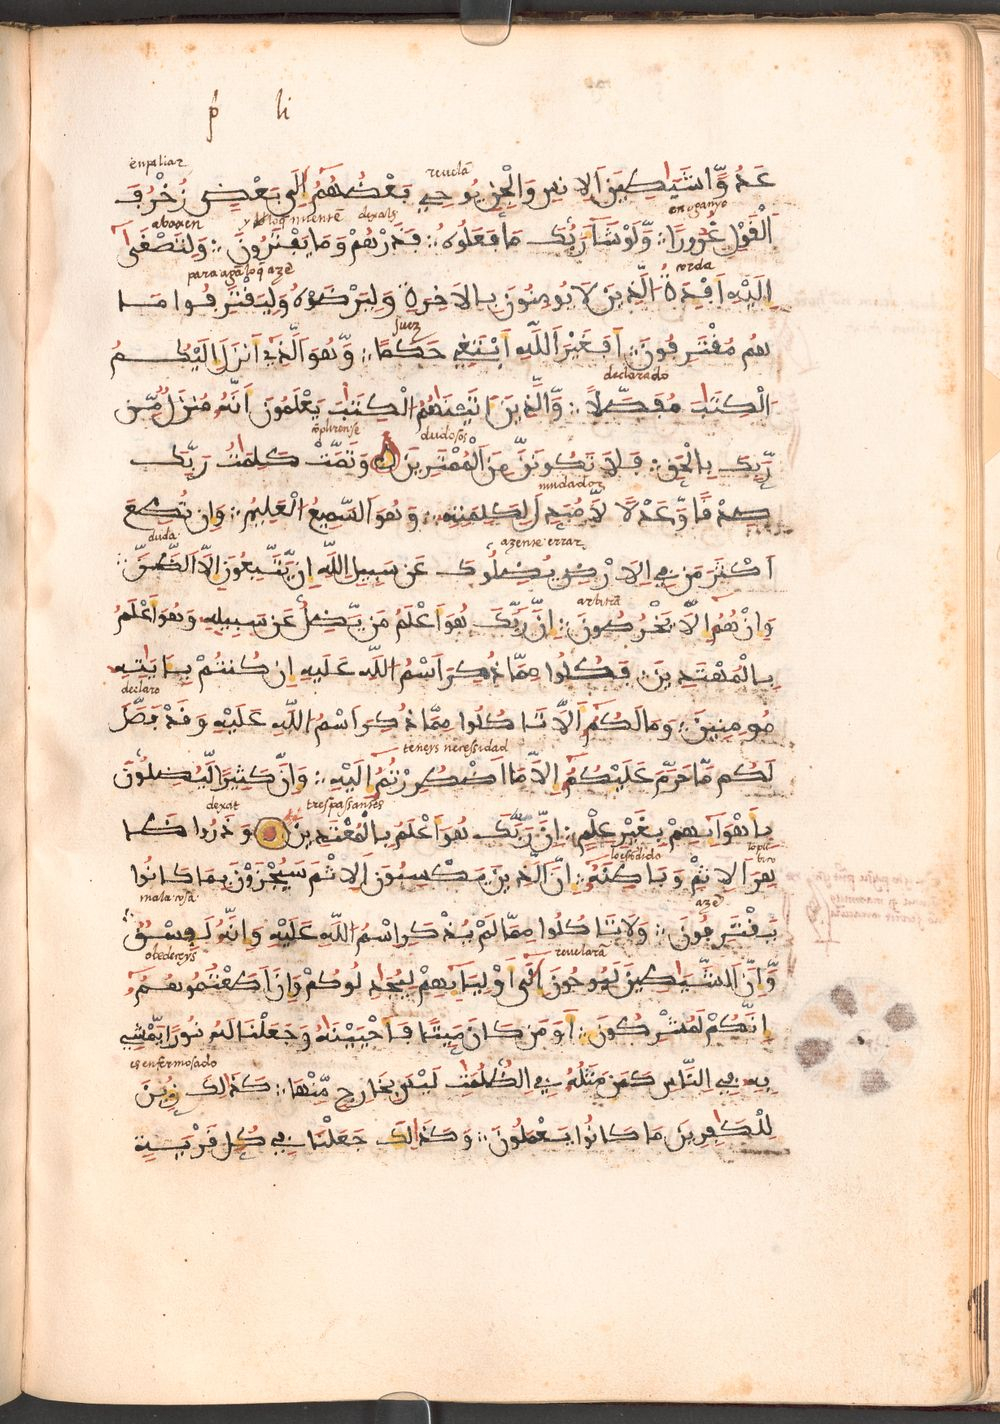 p li
enpaliar
reuela
عَدُوّٗا شَيَٰطِينَ اَلِانسِ وَالْجِنِّ يُوحِے بَعْضُهُمُۥٓ إِلَيٰ بَعْضٖ زُخْرُفَ
abaxen
dexals
enganyo
اَلْقَوْلِ غُرُورٗا وَلَوْ شَآءَ رَبُّكَ مَا فَعَلُوهُ فَذَرْهُمْ وَمَا يَفْتَرُونَ وَلِتَصْغَيٰٓ
corda
إِلَيْهِ أَفْـِٕدَةُ اُلذِينَ لَا يُومِنُونَ بِالَاخِرَةِ وَلِيَرْضَوْهُ وَلِيَقْتَرِفُواْ مَا
juez
هُم مُّقْتَرِفُونَ أَفَغَيْرَ اَللَّهِ أَبْتَغِے حَكَمٗا وَهُوَ اَلذِےٓ أَنزَلَ إِلَيْكُمُ
declarado
اُلْكِتَٰبَ مُفَصَّلٗا وَالذِينَ ءَاتَيْنَٰهُمُ اُلْكِتَٰبَ يَعْلَمُونَ أَنَّهُۥ مُنزَلٞ مِّن
dudosos
رَّبِّكَ بِالْحَقِّ فَلَا تَكُونَنَّ مِنَ اَلْمُمْتَرِينَ وَتَمَّتْ كَلِمَٰتُ رَبِّكَ
mudador
صِدْقٗا وَعَدْلٗا لَّا مُبَدِّلَ لِكَلِمَٰتِهِۦ وَهُوَ اَلسَّمِيعُ اُلْعَلِيمُ وَإِن تُطِعَ
duda
azente errar
اَكْثَرَ مَن فِے اِلَارْضِ يُضِلُّوكَ عَن سَبِيلِ اِللَّهِ إِنْ يَّتَّبِعُونَ إِلَّا اَلظَّنَّ
وَإِنْ هُمُۥٓ إِلَّا يَخْرُصُونَ إِنَّ رَبَّكَ هُوَ أَعْلَمُ مَنْ يَّضِلُّ عَن سَبِيلِهِۦ وَهُوَ أَعْلَمُ
بِالْمُهْتَدِينَ فَكُلُواْ مِمَّا ذُكِرَ اَسْمُ اُللَّهِ عَلَيْهِ إِن كُنتُمْ بِـَٔايَٰتِهِۦ
declaro
مُومِنِينَ وَمَا لَكُمُۥٓ أَلَّا تَاكُلُواْ مِمَّا ذُكِرَ اَسْمُ اُللَّهِ عَلَيْهِ وَقَدْ فَصَّلَ
teneys necessidad
لَكُم مَّا حَرَّمَ عَلَيْكُمُۥٓ إِلَّا مَا اَضْطُرِرْتُمُۥٓ إِلَيْهِ وَإِنَّ كَثِيرٗا لَّيَضِلُّونَ
dexat
trespassantes
بِأَهْوَآئِهِمْ بِغَيْرِ عِلْمٍ إِنَّ رَبَّكَ هُوَ أَعْلَمُ بِالْمُعْتَدِينَ وَذَرُواْ ظَٰـ
loescodido
هِرَ اَلِاثْمِ وَبَاطِنَهُۥٓ إِنَّ اَلذِينَ يَكْسِبُونَ اَلِاثْمَ سَيُجْزَوْنَ بِمَا كَانُواْ
mala cosa
aze
يَقْتَرِفُونَ وَلَا تَاكُلُواْ مِمَّا لَمْ يُذْكَرِ اِسْمُ اُللَّهِ عَلَيْهِ وَإِنَّهُۥ لَفِسْقٞ
obedereys
reuelara
وَإِنَّ اَلشَّيَٰطِينَ لَيُوحُونَ إِلَيٰٓ أَوْلِيَآئِهِمْ لِيُجَٰدِلُوكُمْ وَإِنَ اَطَعْتُمُوهُمُۥٓ
إِنَّكُمْ لَمُشْرِكُونَ أَوَمَن كَانَ مَيِّتٗا فَأَحْيَيْنَٰهُ وَجَعَلْنَا لَهُۥ نُورٗا يَمْشِے
es enfermosado
بِهِۦ فِے اِلنَّاسِ كَمَن مَّثَلُهُۥ فِے اِلظُّلُمَٰتِ لَيْسَ بِخَارِجٖ مِّنْهَا كَذَٰلِكَ زُيِّنَ
لِلْكَٰفِرِينَ مَا كَانُواْ يَعْمَلُونَ وَكَذَٰلِكَ جَعَلْنَا فِے كُلِّ قَرْيَةٍ